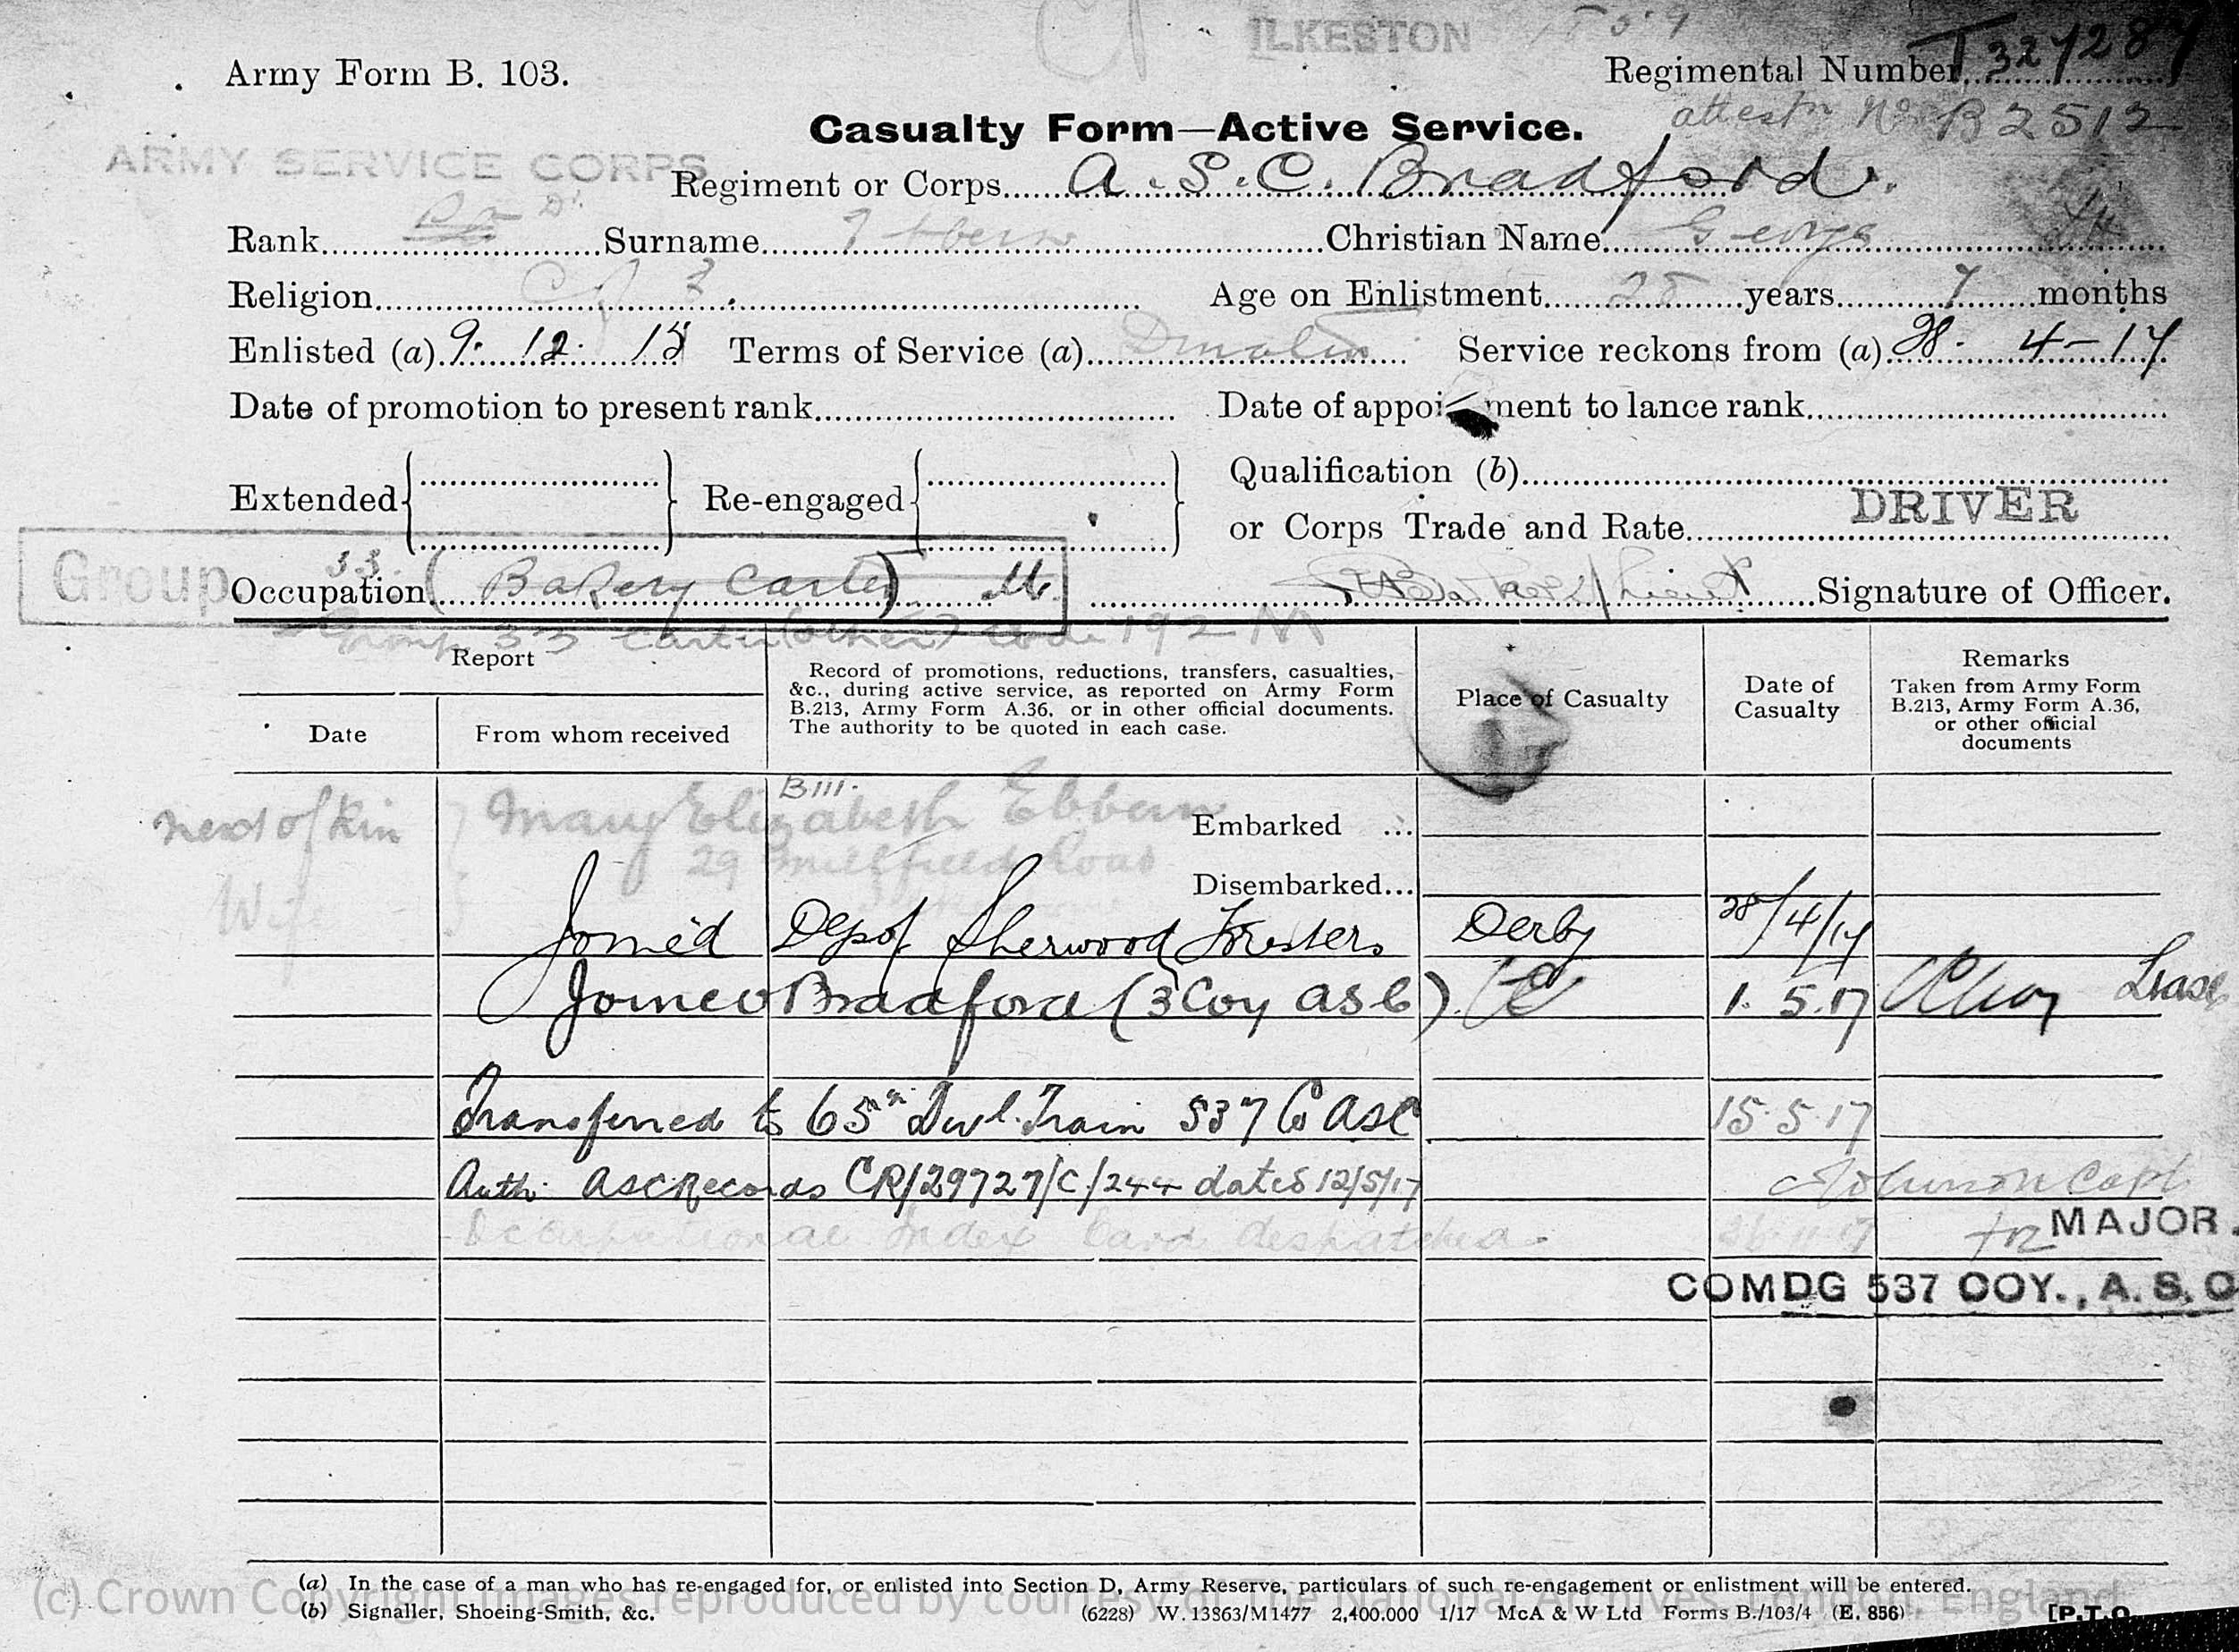 ILKESTON
Army Form B. 103.
Regimental Number T 327287
Casualty Form—Active Service.
attestn No B 2512
ARMY SERVICE CORPS
Regiment or Corps A. S. C. Bradford.
Rank Surname Christian Name George
Religion C of E. Age on Enlistment 25 years 7 months
Enlisted (a) 9. 12. 15 Terms of Service (a) Service reckons from (a) 28. 4-17
Date of promotion to present rank Date of appointment to lance rank
Extended Re-engaged Qualification (b)
or Corps Trade and Rate DRIVER
Group 33. Occupation (Bakery Carter) M. Signature of Officer.
Group 33 Carter (other) Code 192 M
Report
Record of promotions, reductions, transfers, casualties,
&c., during active service, as reported on Army Form
B.213, Army Form A.36, or in other official documents.
The authority to be quoted in each case.
Place of Casualty
Date of
Casualty
Remarks
Taken from Army Form
B.213, Army Form A.36,
or other official
documents
Date From whom received
B111.
next of kin Mary Elizabeth Ebbern Embarked ...
29 Millfield Road
Wife Disembarked...
Joined Depot Sherwood Foresters Derby 28/4/17
Joined Bradford (3 Coy ASC) 1. 5. 17
Transferred to 65th Divl. Train 537 Co ASC 15.5.17
Auth. ASC Records CR/29727/C/244 dated 12/5/17 Johnson Capt
Occupational Index Card despatched. for MAJOR.
COMDG 537 COY., A. S. C
(a) In the case of a man who has re-engaged for, or enlisted into Section D, Army Reserve, particulars of such re-engagement or enlistment will be entered.
(c) Crown Copyright Images reproduced by courtesy of The National Archives, London, England
(b) Signaller, Shoeing-Smith, &c. (6228) W. 13863/M1477 2,400.000 1/17 McA & W Ltd Forms B./103/4 (E. 856) [P.T.O.